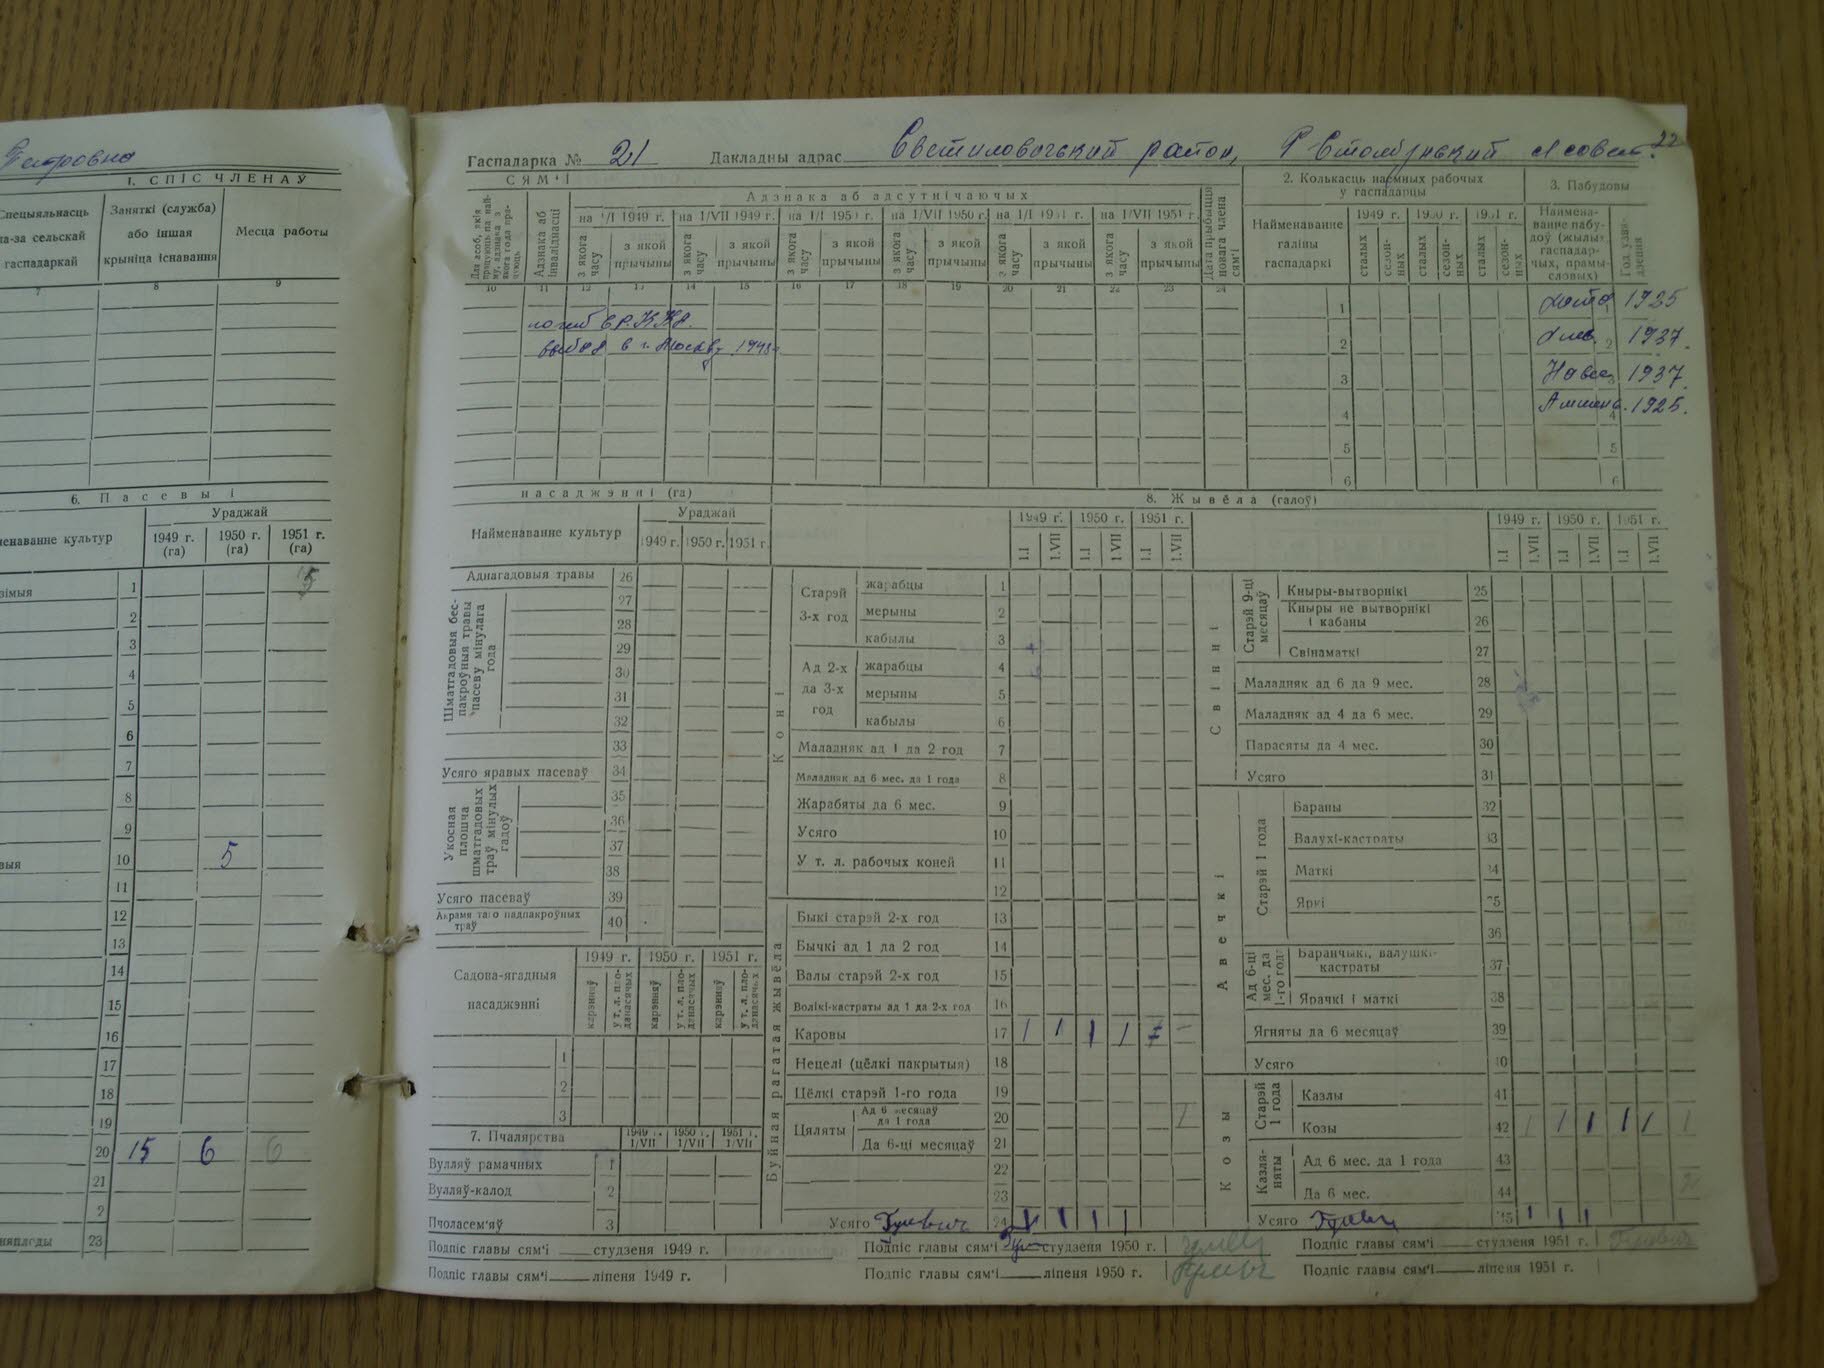 Петровна
Гаспадарка № 21 Дакладны адрас Светиловичский район, Р Столбунский с/совет. 22
1. СПІС ЧЛЕНАЎ
СЯМ'І
Спецыяльнасць па-за сельскай гаспадаркай
Заняткі (служба) або іншая крыніца існавання
Месца работы
7 8 9
Адзнака аб інваліднасці
Адзнака аб адсутнічаючых
на 1/I 1949 г. на 1/VII 1949 г. на 1/I 1950 г. на 1/VII 1950 г. на 1/I 1951 г. на 1/VII 1951 г.
з якога часу з якой прычыны з якога часу з якой прычыны з якога часу з якой прычыны з якога часу з якой прычыны з якога часу з якой прычыны з якога часу з якой прычыны
Дата прыбыцця новага члена сям'і
10 11 12 13 14 15 16 17 18 19 20 21 22 23 24
погиб в Р.К.К.А.
выбыл в г. Москву 1948г
2. Колькасць наёмных рабочых у гаспадарцы
Найменаванне галіны гаспадаркі
1949 г. 1950 г. 1951 г.
сталых сезонных сталых сезонных сталых сезонных
1
2
3
4
5
6
3. Пабудовы
Наймена-
ванне пабу-
доў (жылых,
гаспадар-
чых, прамы-
словых)
Год узвядзення
Хата 1 1925
Хлев. 2 1937.
Навес 3 1937.
Амшаны. 4 1925.
5
6
6. Пасевы і
насаджэнні (га)
Найменаванне культур
Ураджай
1949 г. (га) 1950 г. (га) 1951 г. (га)
1 5
2
3
4
5
6
7
8
9
10 5
11
12
13
14
15
16
17
18
19
20 15 6 6
21
2
23
Найменаванне культур
Ураджай
1949 г. 1950 г. 1951 г.
Аднагадовыя травы 26
Шматгадовыя бес-
пакроўныя травы
пасеву мінулага
года
27
28
29
30
31
32
33
Усяго яравых пасеваў 34
Укосная
плошча
шматгадовых
траў мінулых
гадоў
35
36
37
38
Усяго пасеваў 39
Акрамя таго падпакроўных траў 40
Садова-ягадныя насаджэнні
1949 г. 1950 г. 1951 г.
карэнняў у т. л. пладанасячых карэнняў у т. л. пладанасячых карэнняў у т. л. пладанасячых
1
2
3
7. Пчалярства
1949 г. 1/VII 1950 г. 1/VII 1951 г. 1/VII
Вулляў рамачных 1
Вулляў-калод 2
Пчоласем'яў 3
8. Жывёла (галоў)
1949 г. 1950 г. 1951 г.
1.I 1.VII 1.I 1.VII 1.I 1.VII
Коні
Старэй 3-х год
жарабцы 1
мерыны 2
кабылы 3
Ад 2-х да 3-х год
жарабцы 4
мерыны 5
кабылы 6
Маладняк ад 1 да 2 год 7
Маладняк ад 6 мес. да 1 года 8
Жарабяты да 6 мес. 9
Усяго 10
У т. л. рабочых коней 11
12
Буйная рагатая жывёла
Быкі старэй 2-х год 13
Бычкі ад 1 да 2 год 14
Валы старэй 2-х год 15
Волікі-кастраты ад 1 да 2-х год 16
Каровы 17 1 1 1 1
Нецелі (цёлкі пакрытыя) 18
Цёлкі старэй 1-го года 19
Цяляты
Ад 6 месяцаў да 1 года 20 1
Да 6-ці месяцаў 21
22
23
Усяго Гулевич 24 1 1 1 1
1949 г. 1950 г. 1951 г.
1.I 1.VII 1.I 1.VII 1.I 1.VII
Свінні
Старэй 9-ці месяцаў
Кныры-вытворнікі 25
Кныры не вытворнікі і кабаны 26
Свінаматкі 27
Маладняк ад 6 да 9 мес. 28
Маладняк ад 4 да 6 мес. 29
Парасяты да 4 мес. 30
Усяго 31
Авечкі
Старэй 1 года
Бараны 32
Валухі-кастраты 33
Маткі 34
Яркі 35
36
Ад 6-ці мес. да 1-го года
Баранчыкі, валушкі-кастраты 37
Ярачкі і маткі 38
Ягняты да 6 месяцаў 39
Усяго 40
Козы
Старэй 1 года
Казлы 41
Козы 42 1 1 1 1 1 1
Казляняты
Ад 6 мес. да 1 года 43
Да 6 мес. 44 2
Усяго 45 1 1 1
Подпіс главы сям'і студзеня 1949 г.
Подпіс главы сям'і студзеня 1950 г.
Подпіс главы сям'і студзеня 1951 г. Гулевич
Подпіс главы сям'і ліпеня 1949 г.
Подпіс главы сям'і ліпеня 1950 г. Гулевич
Подпіс главы сям'і ліпеня 1951 г.